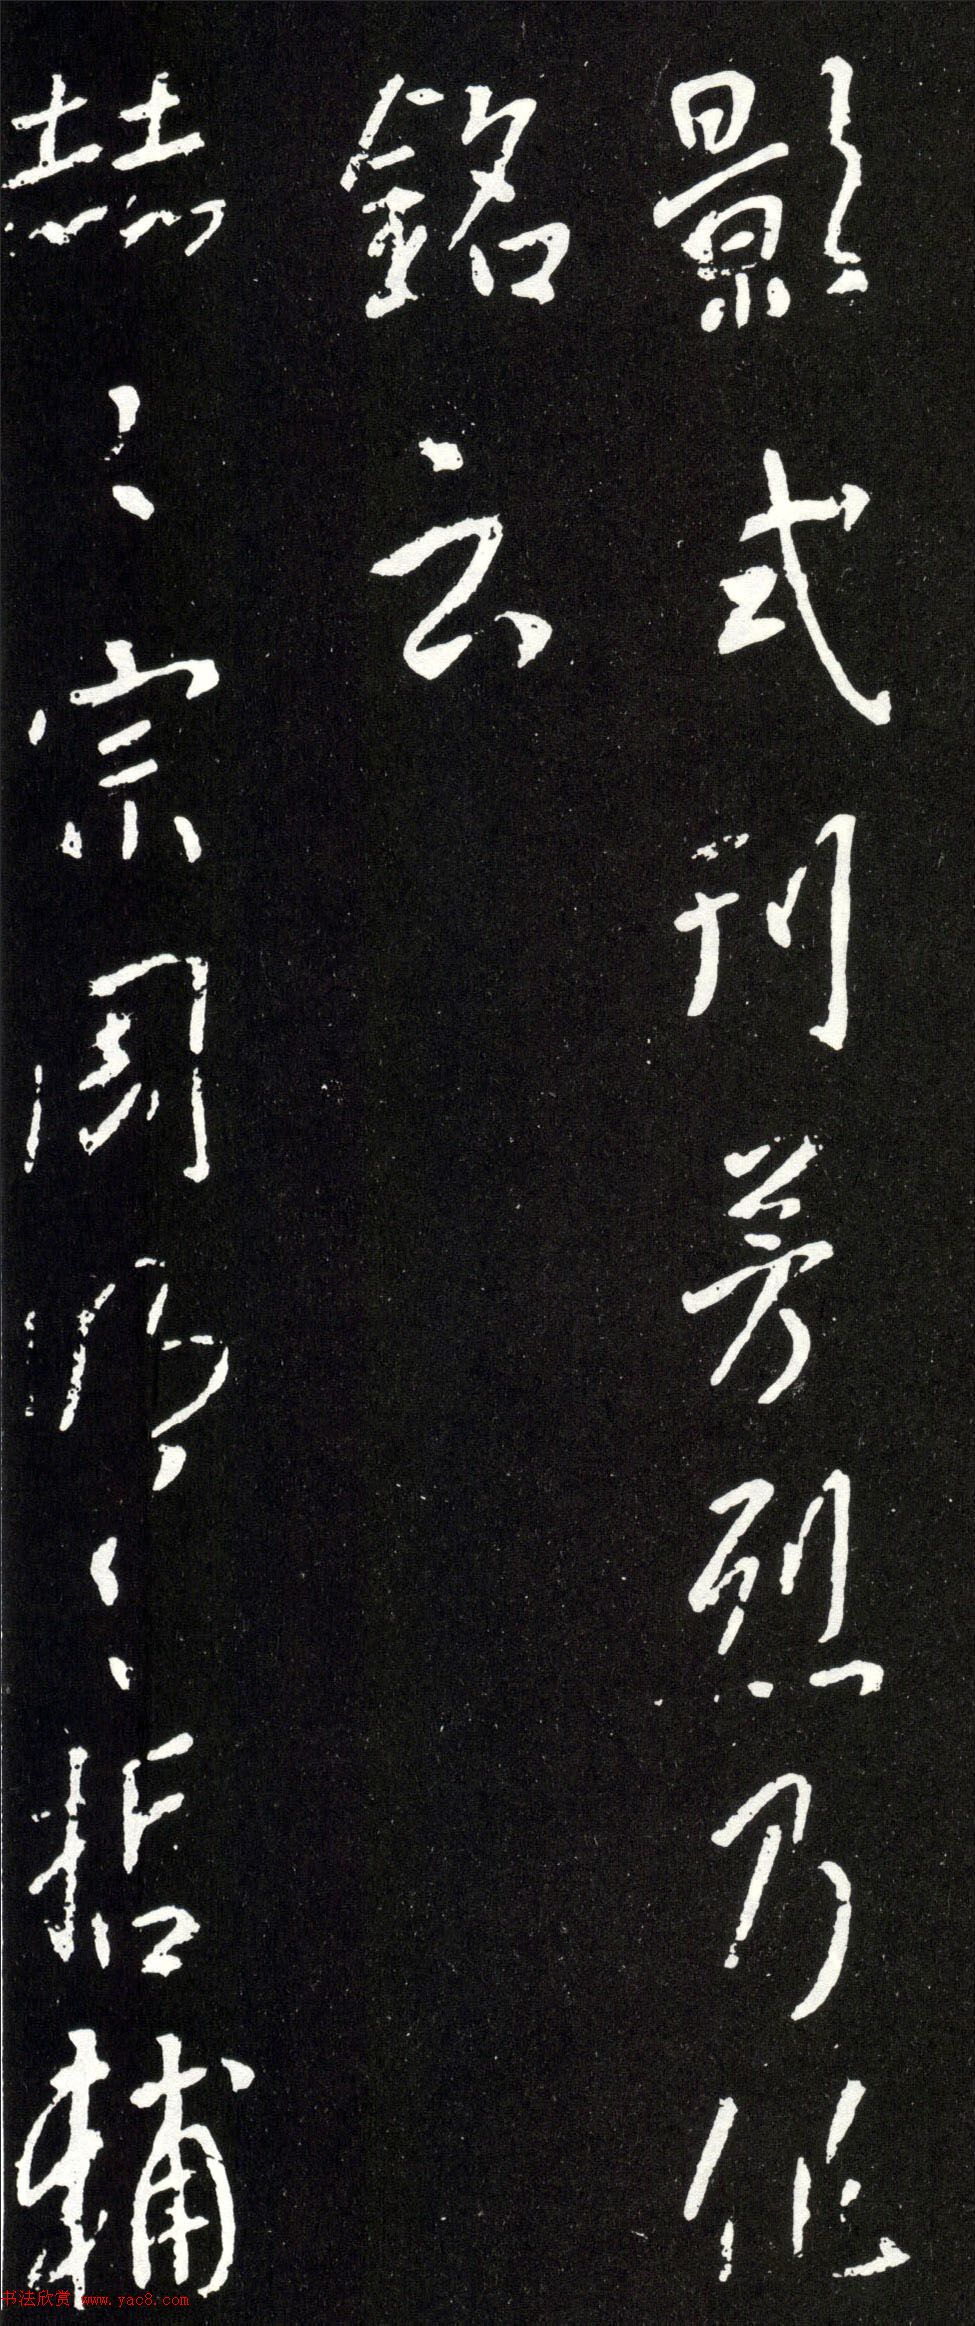 影式刊芳烈乃作
銘云
赫〻宗周明〻哲輔
书法欣赏 www.yac8.com